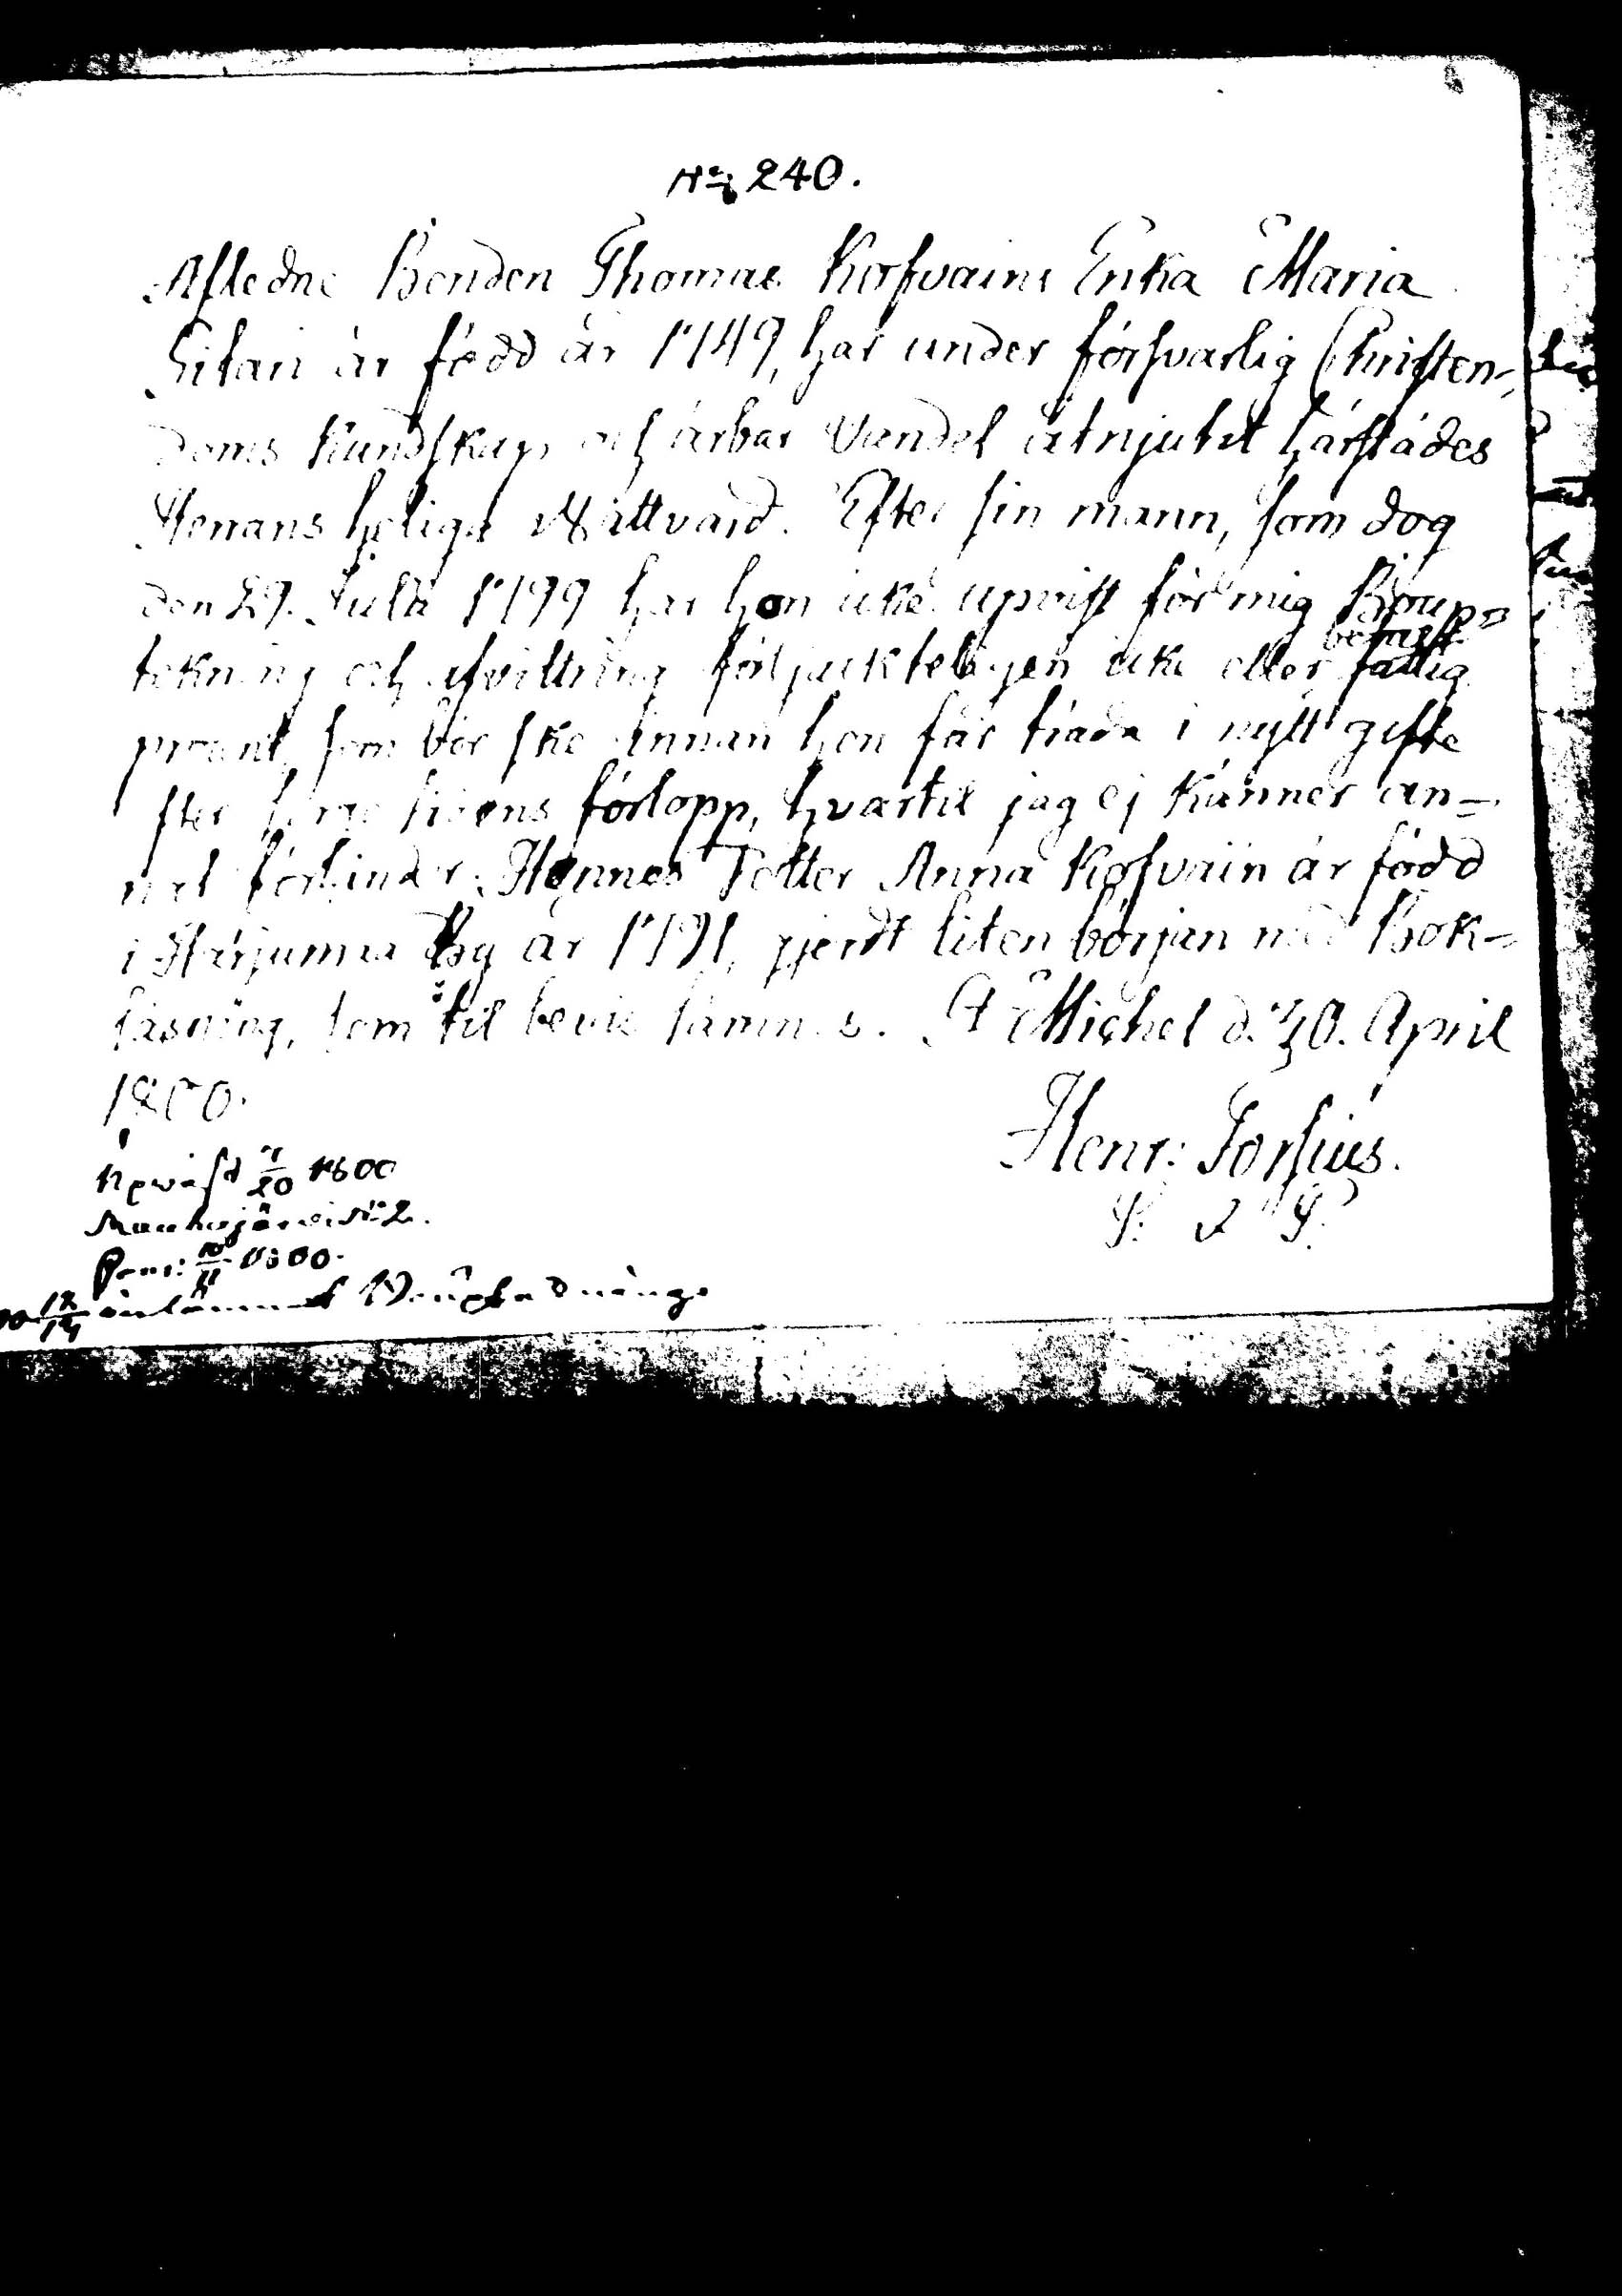 No 240.
Afledne Bonden Thomas Korhvains Enka Maria
är född år 1749, har under försvarlig Christen-
doms Kundskap och ärbar Vandel åtnjutit härstädes
Herrans heliga Nattvard. Efter sin mann, som dog
den 29. Julii 1799 har hon icke upvist för mig Boup-
tekning och afvittring icke eller
betalt
fattig
procent, som bör ske innan hon får träda i nytt gifte
efter sorge tidens förlopp, hvartil jag ej känner an-
nat förhinder. Hennes Dotter Anna Korhvain är född
i Harjumaa By år 1791, gjordt liten början med Bok-
läsning, som til bevis lämnas. St Michel d. 30. April
1800.
Henr: Forsius.
Upvist 4/20 1800
No 2.
1800.